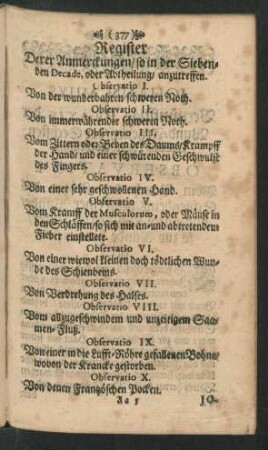 (377)
Register
Derer Anmerckungen/ so in der Sieben-
den Decade, oder Abtheilung/ anzutreffen.
Observatio I.
Von der wunderbahren schweren Noth.
Observatio II.
Von immerwährender schweren Noth.
Observatio III.
Vom Zittern oder Beben des Daums/ Krampff
der Hand/ und einer schwürenden Geschwulst
des Fingers.
Observatio IV.
Von einer sehr geschwollenen Hand.
Observatio V.
Vom Krampff der Musculorum, oder Mäuse in
den Schläffen/ so sich mit an- und abtretendem
Fieber einstellete.
Observatio VI.
Von einer wiewol kleinen doch tödtlichen Wun-
de des Schienbeins.
Observatio VII.
Von Verdrehung des Halses.
Observatio VIII.
Vom allzugeschwindem und unzeitigem Saa-
men-Fluß.
Observatio IX.
Von einer in die Lufft-Röhre gefallenen Bohne/
wovon der Krancke gestorben.
Observatio X.
Von denen Frantzöschen Pocken.